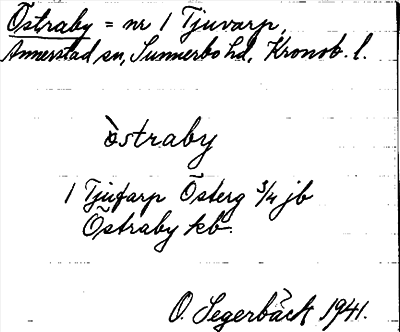 Östraby = nr 1 Tjuvarp,
Annerstad sn, Sunnerbo hd, Kronob. l.
östraby
1 Tjufarp Österg 3/4 jb
Östraby kb.
O. Segerbäck 1941.